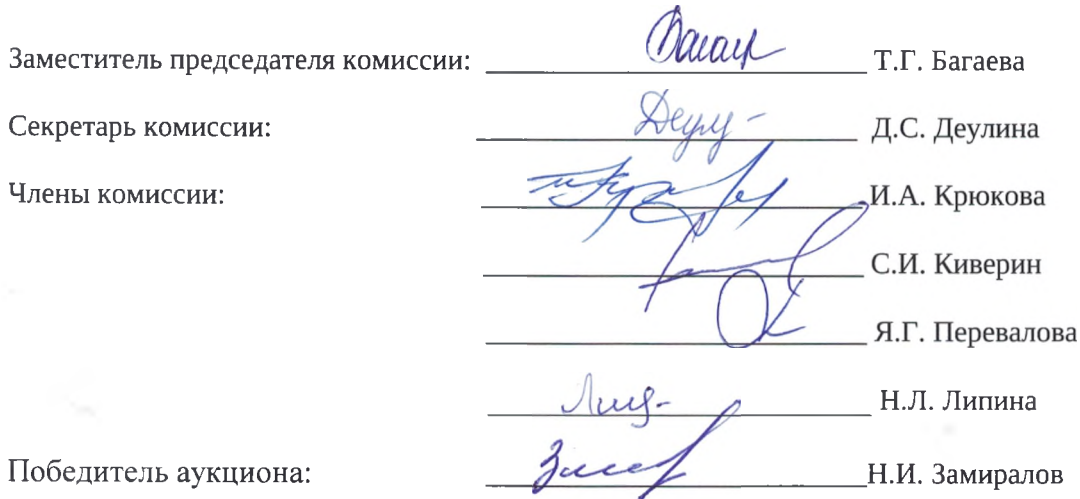 Заместитель председателя комиссии: Т.Г. Багаева
Секретарь комиссии: Д.С. Деулина
Члены комиссии: И.А. Крюкова
С.И. Киверин
Я.Г. Перевалова
Н.Л. Липина
Победитель аукциона: Н.И. Замиралов